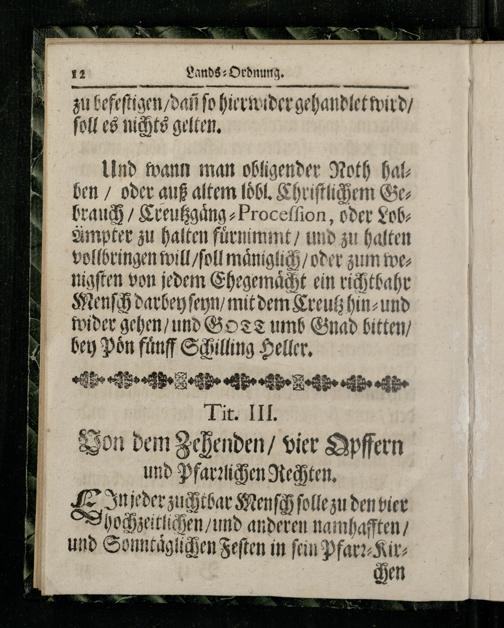 12
Lands-Ordnung.
zu befestigen/dañ so hierwider gehandlet wird/
soll es nichts gelten.
Und wann man obligender Noth hal-
ben / oder auß altem löbl. Christlichem Ge-
brauch/ Creutzgäng-Procession, oder Lob-
ämpter zu halten fürnimmt/ und zu halten
vollbringen will/soll mäniglich/oder zum we-
nigsten von jedem Ehegemächt ein richtbahr
Mensch darbey seyn/mit dem Creutz hin-und
wider gehen/und GOTT umb Gnad bitten/
bey Pön fünff Schilling Heller.
Tit. III.
Von dem Zehenden/ vier Opffern
und Pfarrlichen Rechten.
EIn jeder zuchtbar Mensch solle zu den vier
hochzeitlichen/und anderen namhafften/
und Sonntäglichen Festen in sein Pfarr-Kir-
chen